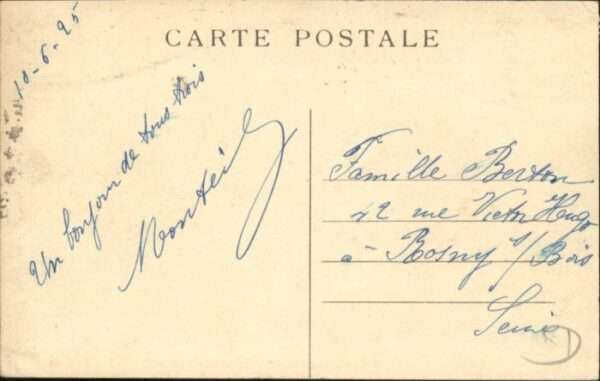 CARTE POSTALE
10-6-25
Un bonjour de tous trois
Monteil
Famille Berton
42 rue Victor Hugo
à Rosny s/Bois
Seine